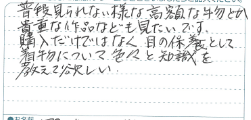 普段見られない様な高額な物とか
貴重な作品なども見たいです。
購入だけではなく目の保養として
着物について色々と知識を
教えて欲しい。